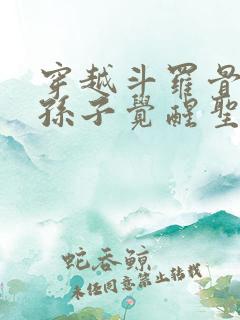 穿越斗羅最
孫子覺醒聖
蛇吞鯨
未经同意禁止转载